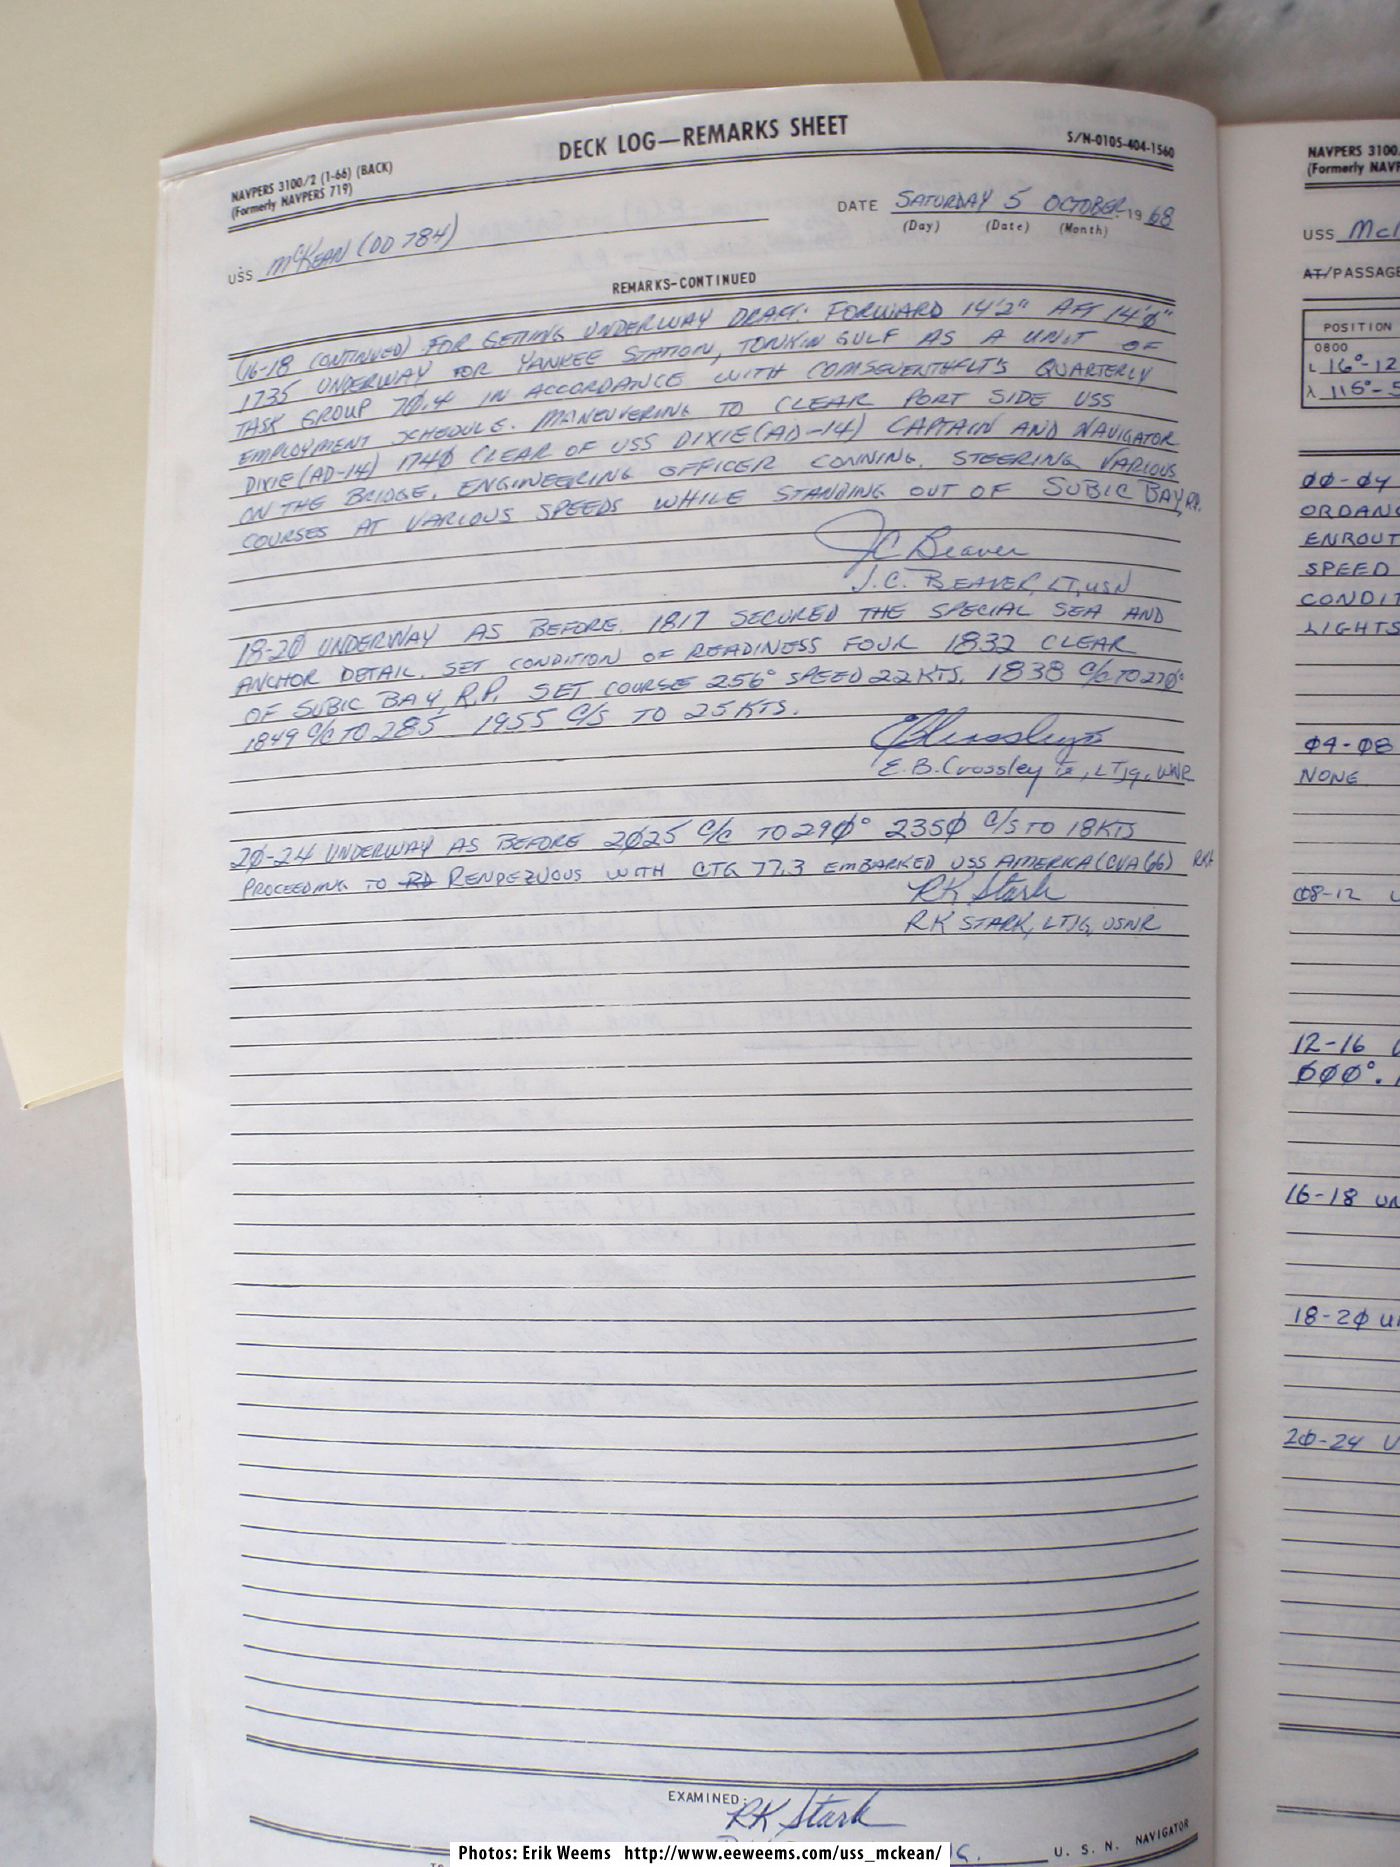 DECK LOG—REMARKS SHEET
S/N-0105-404-1560
NAVPERS 3100/2 (1-66) (BACK)
(Formerly NAVPERS 719)
DATE SATURDAY 5 OCTOBER 1968
(Day) (Date) (Month)
USS McKEAN (DD 784)
REMARKS-CONTINUED
(16-18 CONTINUED) FOR GETTING UNDERWAY DRAFT: FORWARD 14'2" AFT 14'0"
1735 UNDERWAY FOR YANKEE STATION, TONKIN GULF AS A UNIT OF
TASK GROUP 70.4 IN ACCORDANCE WITH COMSEVENTHFLT'S QUARTERLY
EMPLOYMENT SCHEDULE. MANEUVERING TO CLEAR PORT SIDE USS
DIXIE (AD-14) 1740 CLEAR OF USS DIXIE (AD-14) CAPTAIN AND NAVIGATOR
ON THE BRIDGE, ENGINEERING OFFICER CONNING, STEERING VARIOUS
COURSES AT VARIOUS SPEEDS WHILE STANDING OUT OF SUBIC BAY, R.P.
JC Beaver
J.C. BEAVER, LT, USN
18-20 UNDERWAY AS BEFORE. 1817 SECURED THE SPECIAL SEA AND
ANCHOR DETAIL. SET CONDITION OF READINESS FOUR 1832 CLEAR
OF SUBIC BAY, R.P. SET COURSE 256° SPEED 22 KTS. 1838 C/C TO 270°
1849 C/C TO 285 1955 C/S TO 25 KTS.
E.B. Crossley Jr., LTjg, USNR
20-24 UNDERWAY AS BEFORE 2025 C/C TO 290° 2350 C/S TO 18 KTS
PROCEEDING TO RENDEZVOUS WITH CTG 77.3 EMBARKED USS AMERICA (CVA 66)
RK Stark
RK STARK, LTJG, USNR
EXAMINED:
RK Stark
U. S. N. NAVIGATOR
NAVPERS 3100
(Formerly NAVP
USS McK
AT/PASSAGE
POSITION
0800
L 16°-12
λ 115°-
00-04
ORDANC
ENROUT
SPEED
CONDIT
LIGHTS
04-08
NONE
08-12 U
12-16 U
000°.
16-18 UN
18-20 UN
20-24 U
Photos: Erik Weems http://www.eeweems.com/uss_mckean/